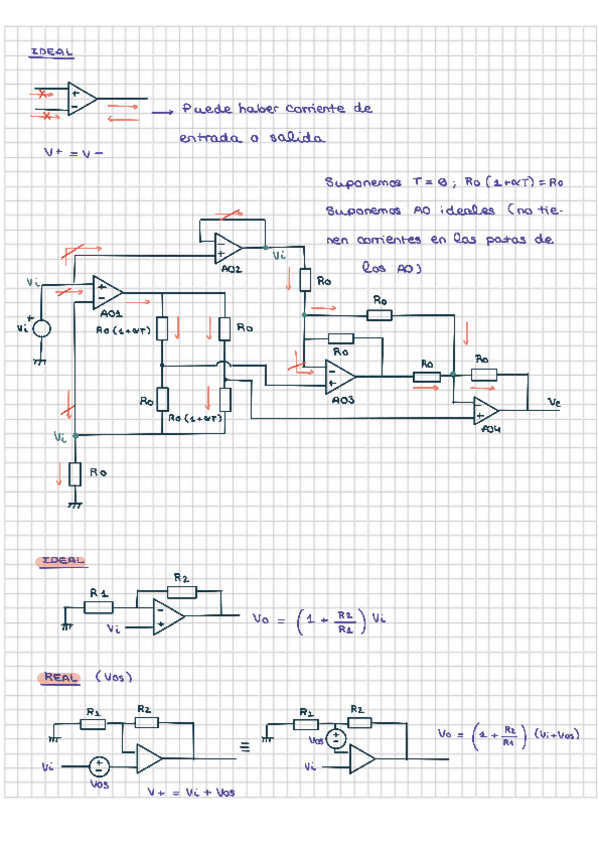 IDEAL
+
-
→ Puede haber corriente de
entrada o salida
V+ = V-
Suponemos T = 0 ; Ro (1+αT) = Ro
Suponemos AO ideales (no tie-
nen corrientes en las patas de
los AO)
-
+
Vi
AO2
Ro
Vi
+
-
AO1
Ro
Vi
+
-
Ro (1+αT)
Ro
Ro
-
+
AO3
Ro
Ro
Ro
Ro (1+αT)
-
+
AO4
Ve
Vi
Ro
IDEAL
R2
R1
-
+
Vi
Vo = (1 + R2/R1) Vi
REAL (Vos)
R1
R2
Vi
+
-
Vos
V+ = Vi + Vos
≡
R1
R2
Vos
+
-
Vi
Vo = (1 + R2/R1) (Vi+Vos)